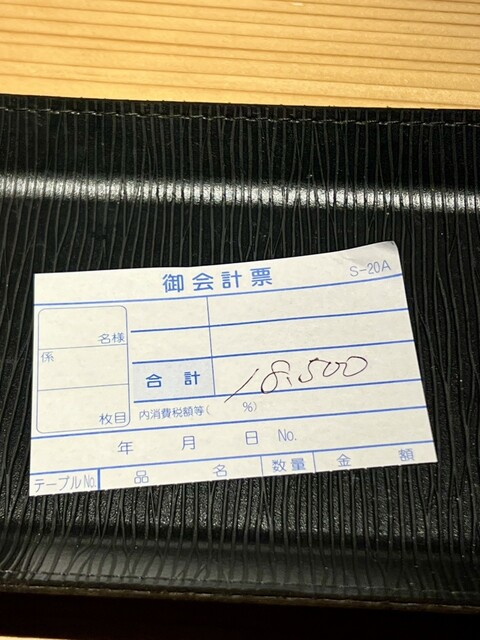 御会計票 S-20A
名様
係
合計 18,500
枚目 内消費税額等( %)
年 月 日 No.
テーブルNo. 品名 数量 金額